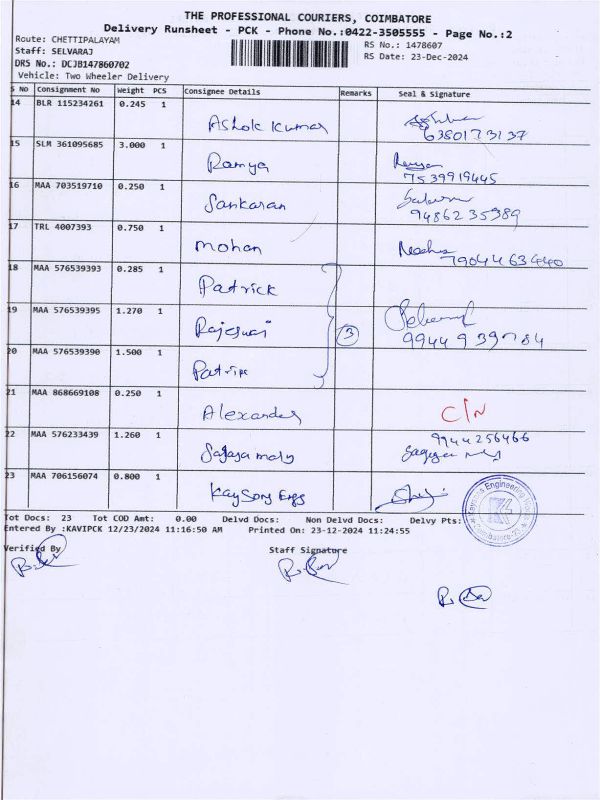 THE PROFESSIONAL COURIERS, COIMBATORE
Delivery Runsheet - PCK - Phone No.:0422-3505555 - Page No.:2
Route: CHETTIPALAYAM
RS No.: 1478607
Staff: SELVARAJ
RS Date: 23-Dec-2024
DRS No.: DCJB147860702
Vehicle: Two Wheeler Delivery
S No Consignment No Weight PCS Consignee Details Remarks Seal & Signature
14 BLR 115234261 0.245 1
Ashok Kumar
6380173137
15 SLM 361095685 3.000 1
Ramya
7539919445
16 MAA 703519710 0.250 1
Sankaran
9486235989
17 TRL 4007393 0.750 1
mohan
7904463440
18 MAA 576539393 0.285 1
Patrick
19 MAA 576539395 1.270 1
3
20 MAA 576539390 1.500 1
21 MAA 868669108 0.250 1
Alexander
C/N
22 MAA 576233439 1.260 1
9944256466
Sagaya mary
23 MAA 706156074 0.800 1
Kaysons Engg
Tot Docs: 23 Tot COD Amt: 0.00 Delvd Docs: Non Delvd Docs: Delvy Pts:
Entered By :KAVIPCK 12/23/2024 11:16:50 AM Printed On: 23-12-2024 11:24:55
Verified By Staff Signature